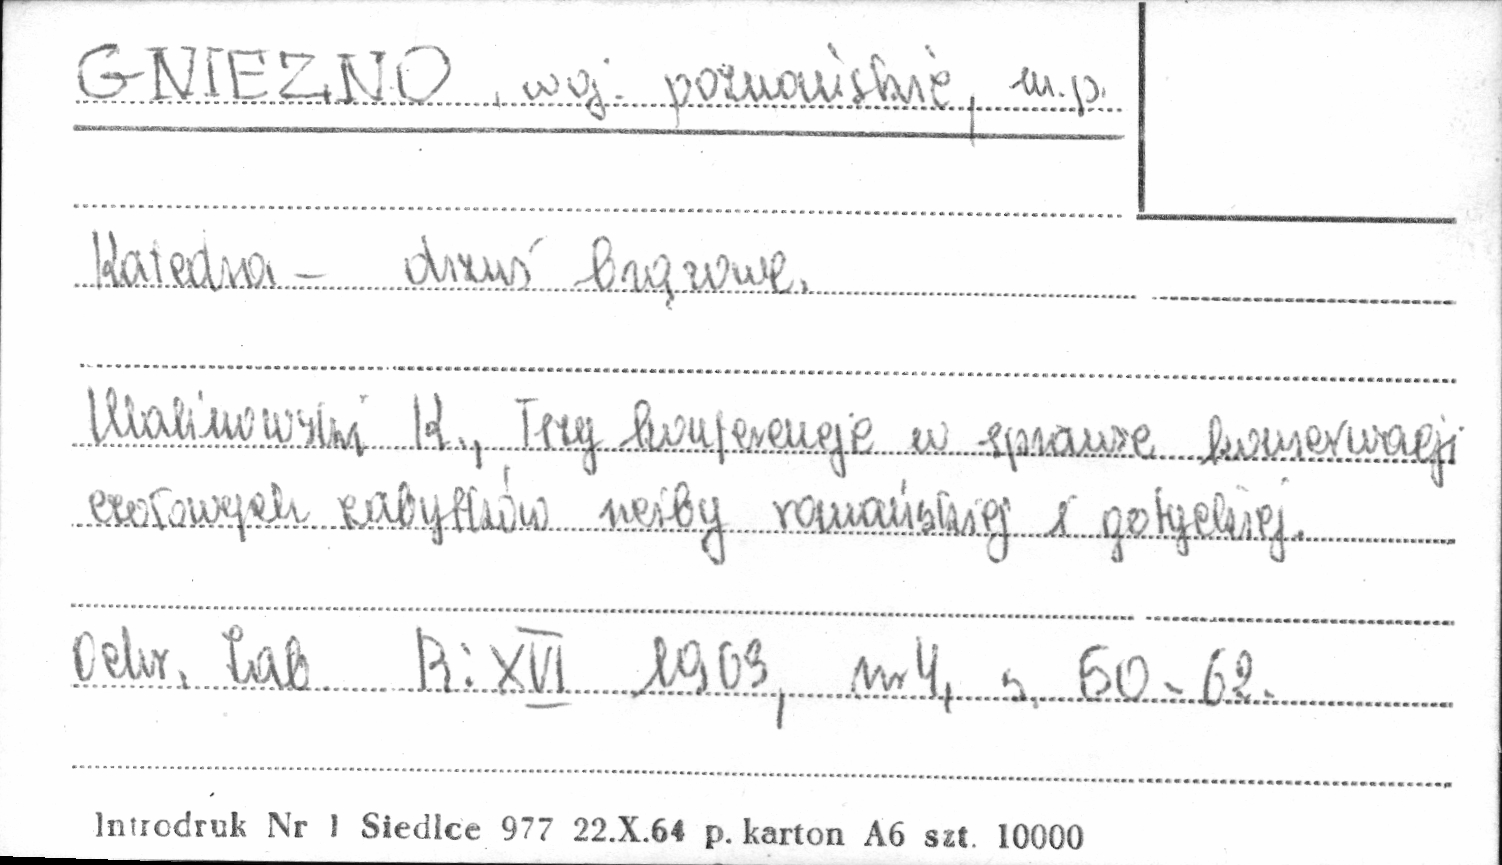 GNIEZNO, woj. poznańskie, m.p.
Katedra – drzwi brązowe.
Malinowski K., Trzy konferencje w sprawie konserwacji
czołowych zabytków rzeźby romańskiej i gotyckiej.
Ochr. Zab R: XVI 1963, nr 4, s. 60-62.
Introdruk Nr 1 Siedlce 977 22.X.64 p. karton A6 szt. 10000